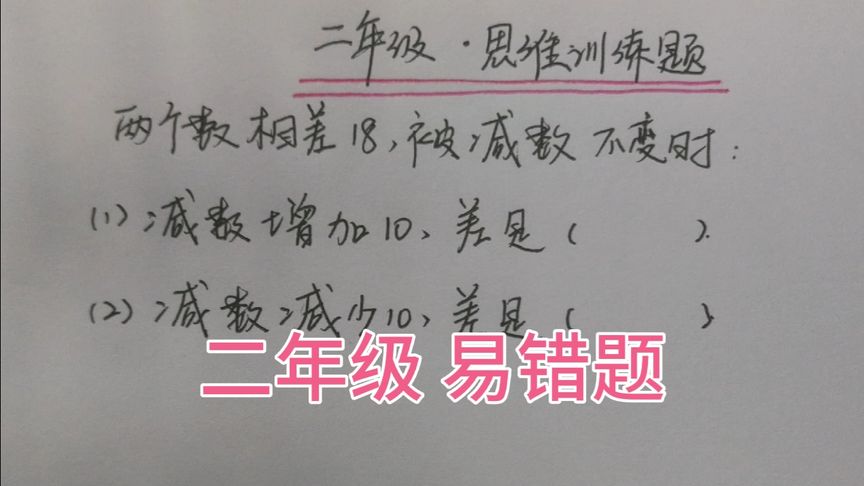 二年级·思维训练题
两个数相差18,被减数不变时:
(1)减数增加10、差是( ).
(2)减数减少10、差是( )
二年级 易错题